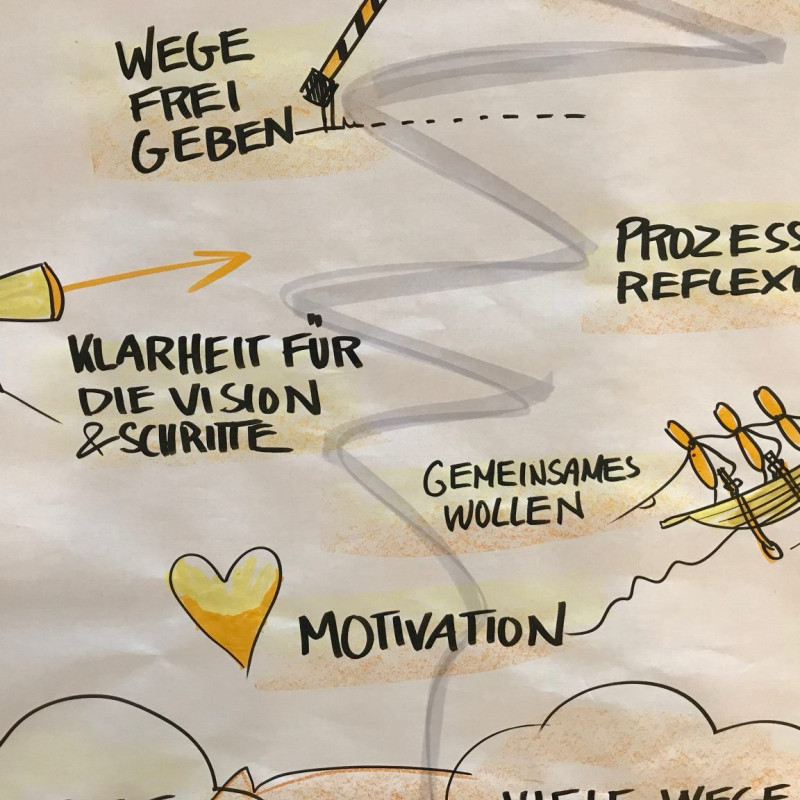 WEGE
FREI
GEBEN
PROZESS
REFLEXI
KLARHEIT FÜR
DIE VISION
& SCHRITTE
GEMEINSAMES
WOLLEN
MOTIVATION
VIELE WEGE